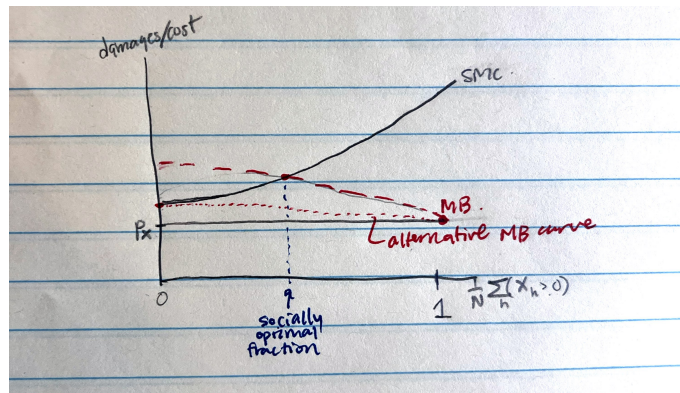 damages/cost
SMC.
MB.
Px
alternative MB curve
0
q
1
1/N Σh (Xh>0)
socially
optimal
fraction